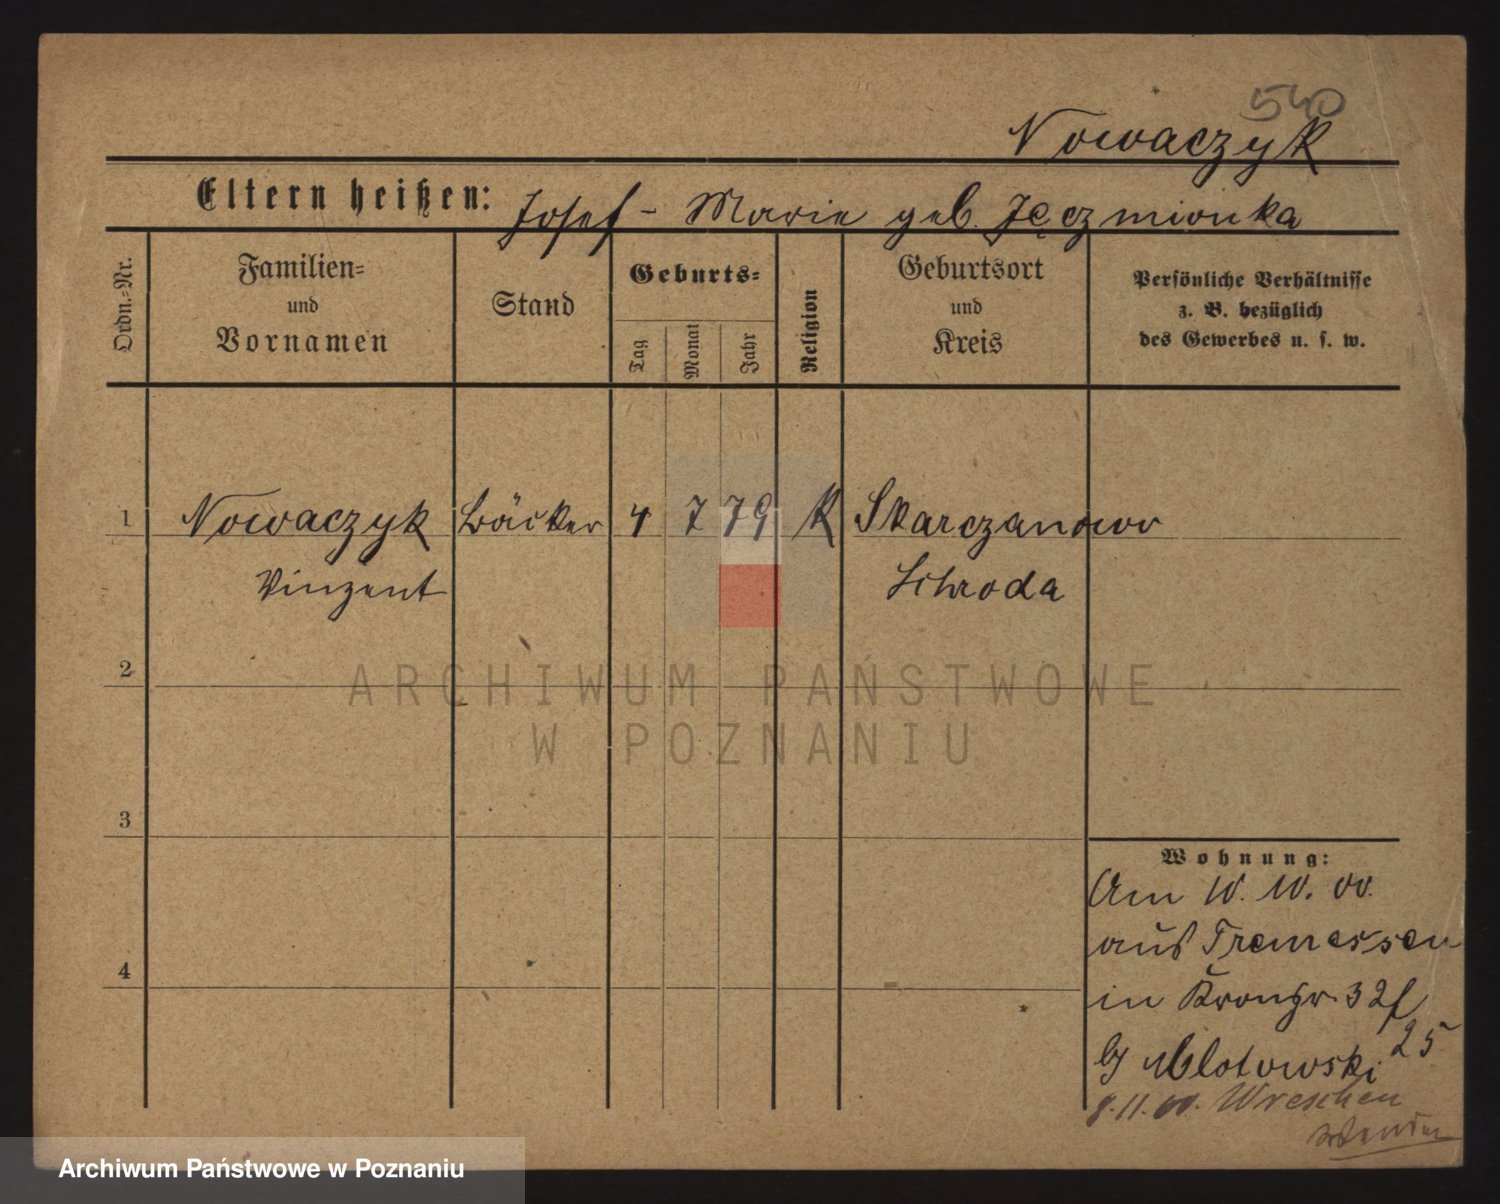 540
Nowaczyk
Eltern heißen: Josef - Marie geb. Jęczmionka
Ordn.-Nr.
Familien-
und
Vornamen
Stand
Geburts-
Tag
Monat
Jahr
Religion
Geburtsort
und
Kreis
Persönliche Verhältnisse
z. B. bezüglich
des Gewerbes u. s. w.
1 Nowaczyk Bäcker 4 7 79 K Skarczanowo
Vinzent Schroda
2
ARCHIWUM PAŃSTWOWE
W POZNANIU
3
4
Wohnung:
Am 10. 10. 00.
aus Tremessen
in Kronpr. 32
25
by Mlotowski
8.11.00. Wreschen
Archiwum Państwowe w Poznaniu